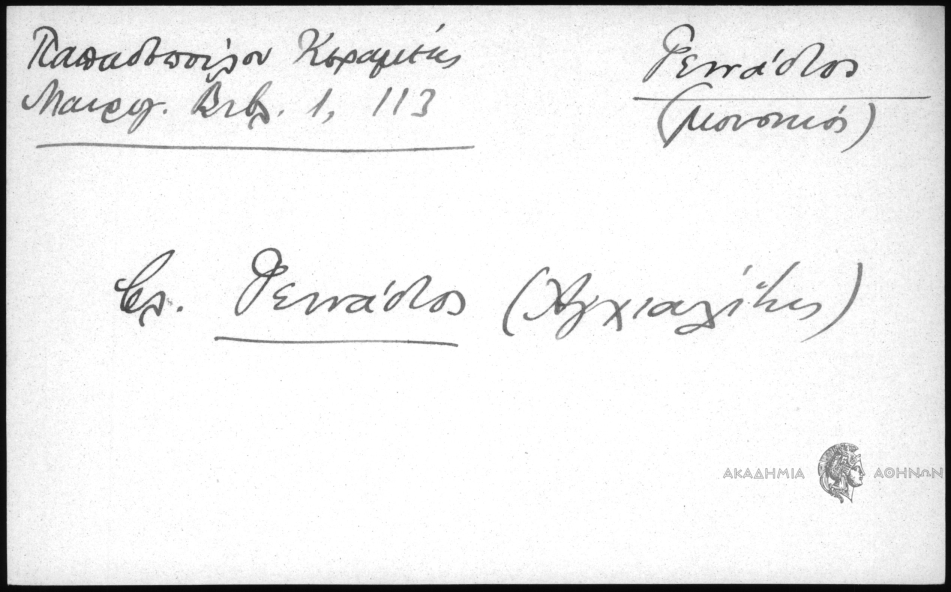 Παπαδοπούλου Κεραμεύς
Μαυρογ. Βιβλ. 1, 113
Γεννάδιος
(μουσικός)
βλ. Γεννάδιος (Ἀγχιαλίτης)
ΑΚΑΔΗΜΙΑ ΑΘΗΝΩΝ